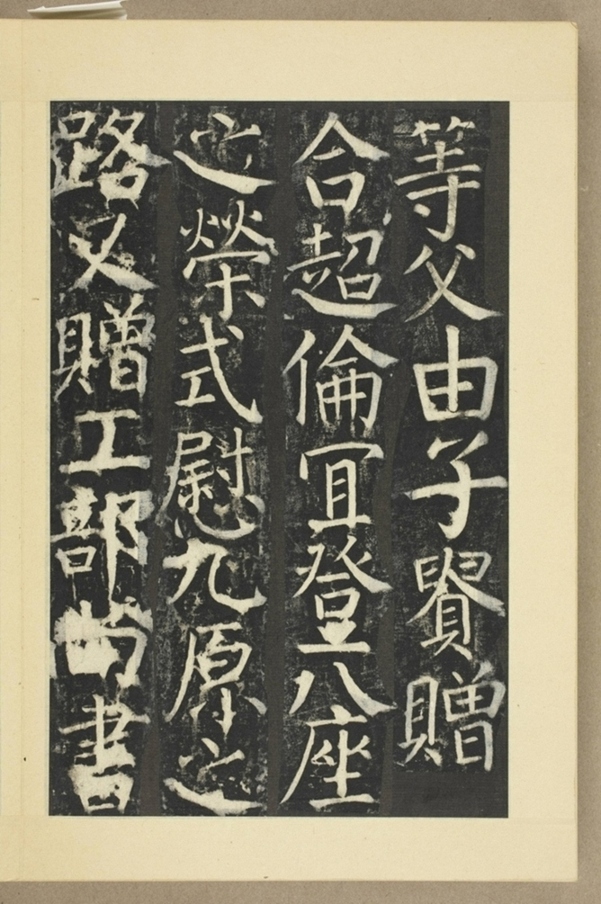 等父由子賢贈
合超倫冝登八座
之榮式慰九原之
路又贈工部尚書